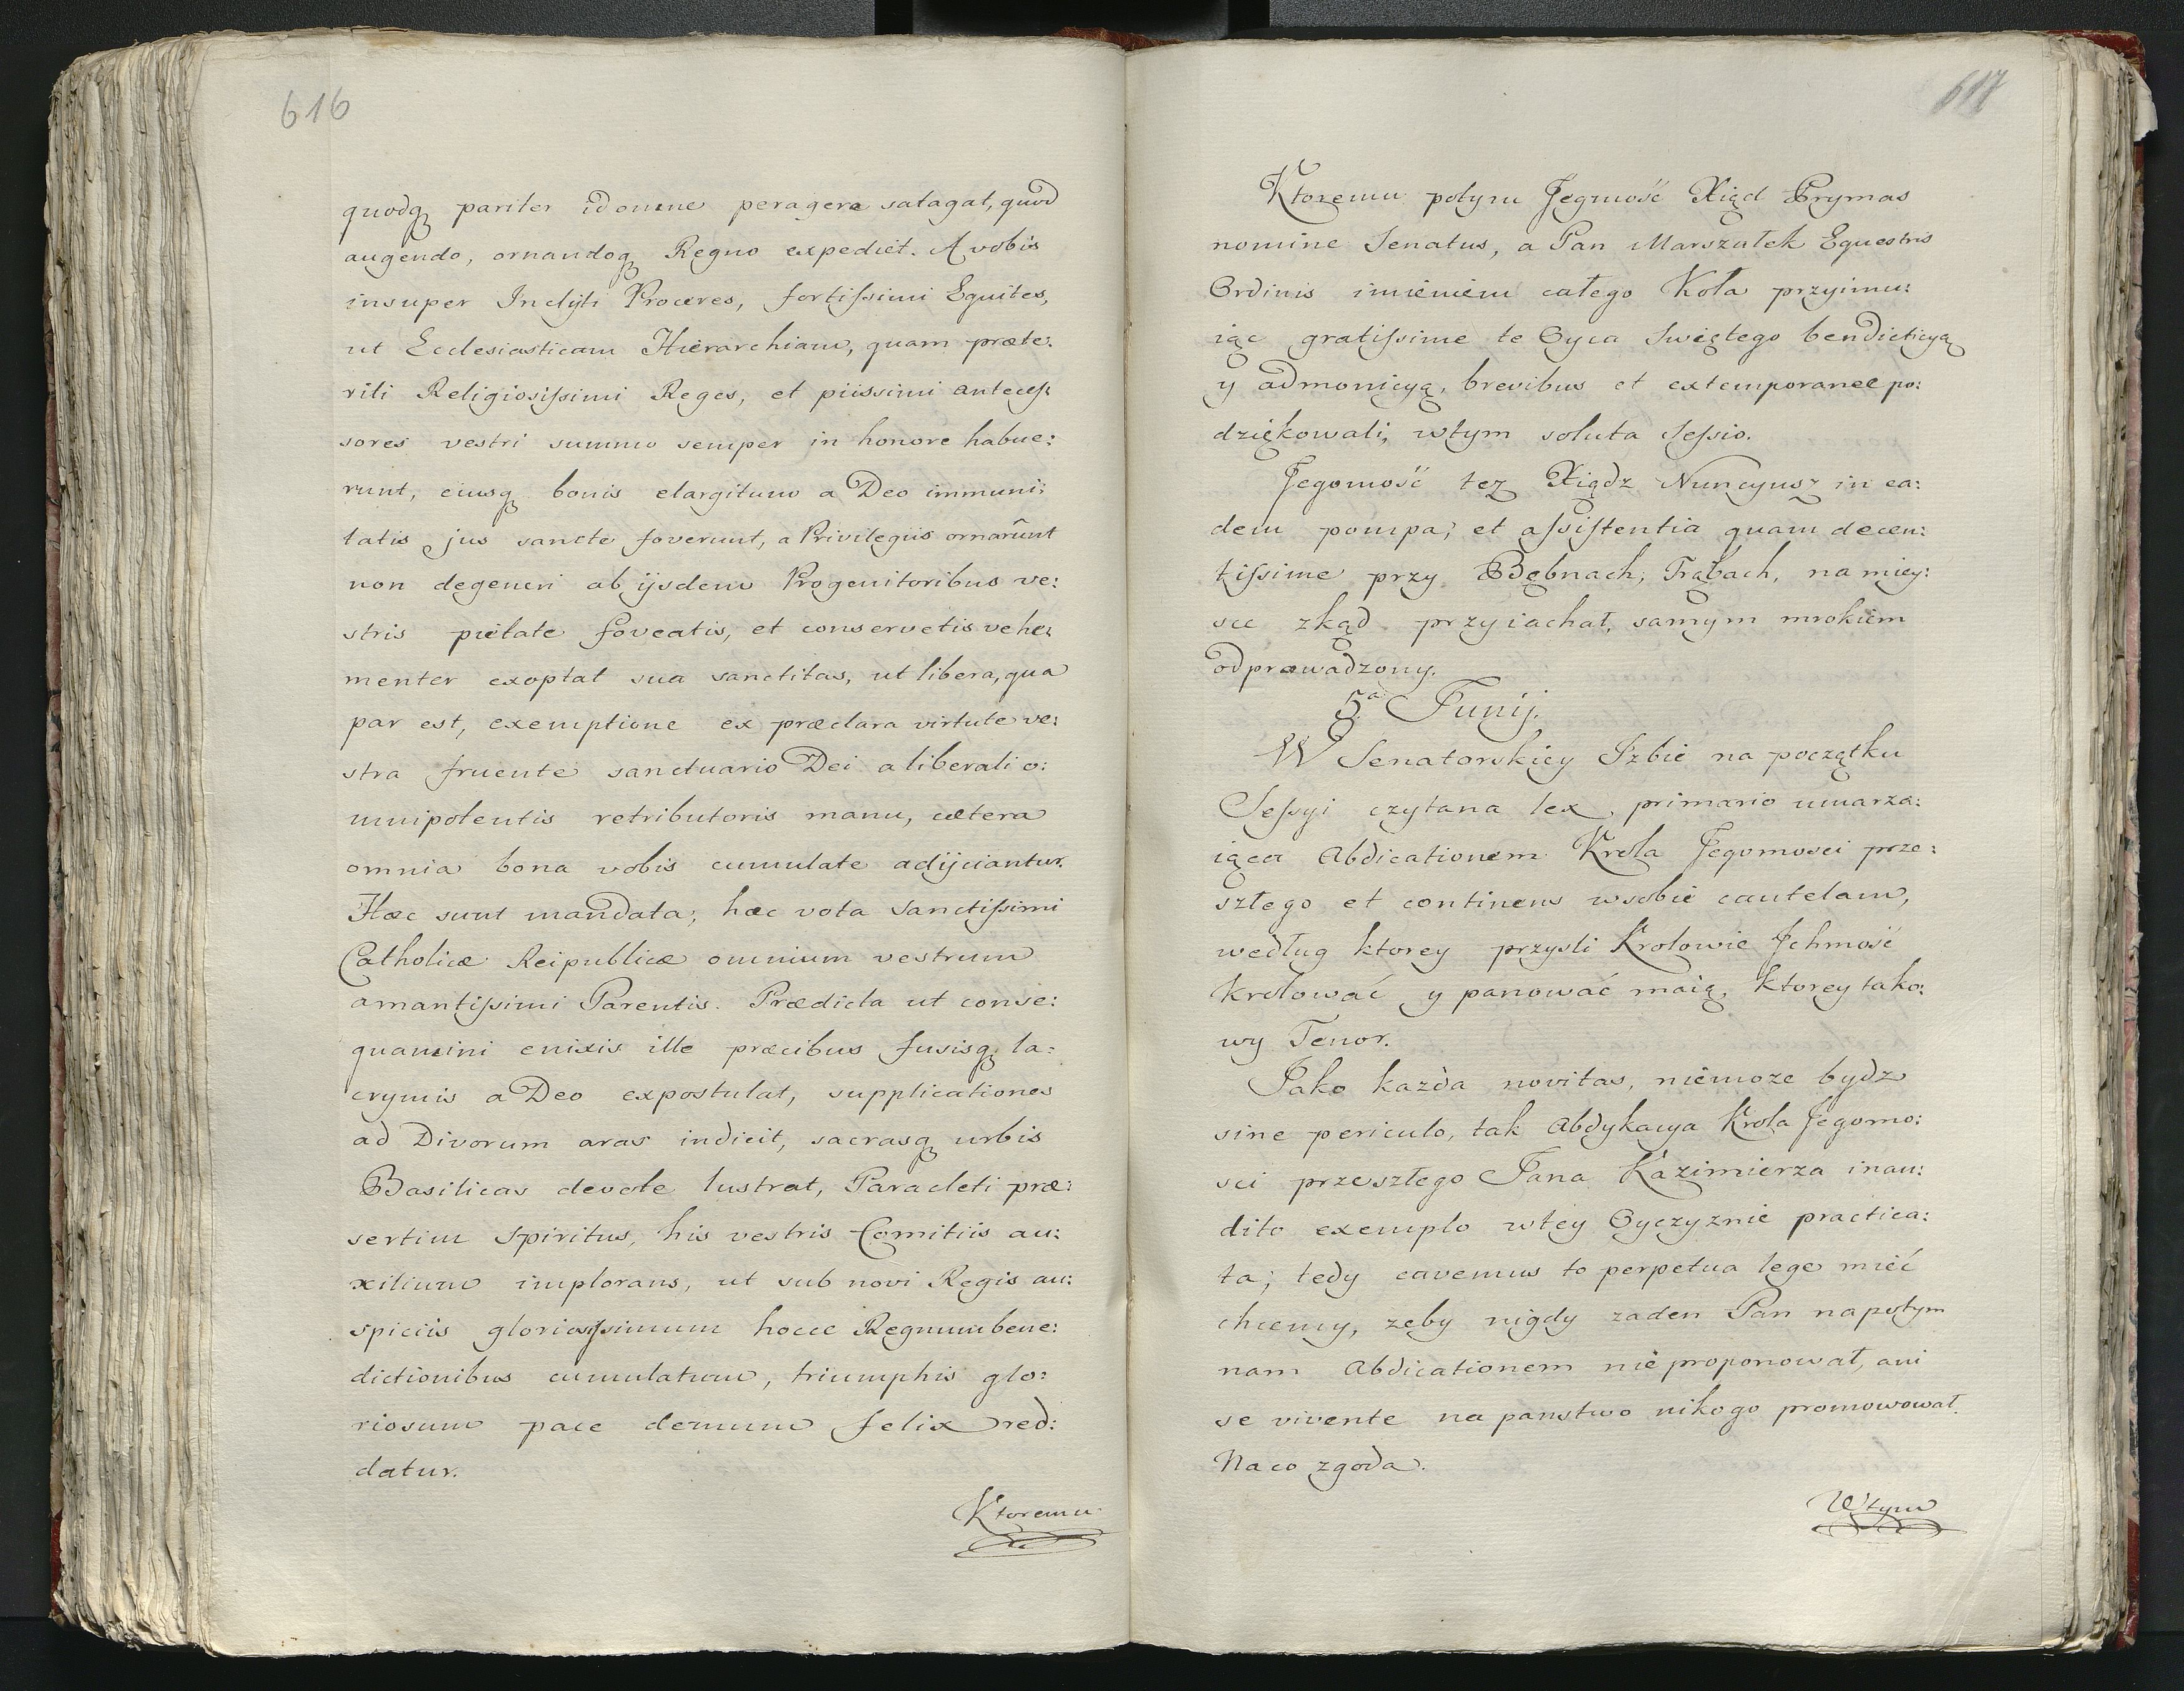 616
quodq pariter idonine peragere satagat, quod
augendo, ornandoq Regno expediet. A vobis
insuper Inclyti Proceres, fortissimi Equites,
ut Ecclesiasticam Hierarchiam, quam præte:
riti Religiosissimi Reges, et piissimi anteces:
sores vestri summo semper in honore habue:
runt, eiusq bonis elargitum a Deo immuni:
tatis jus sancte foverunt, a Privilegiis ornarûnt
non degeneri ab ijsdem Progenitoribus ve:
stris pietate foveatis, et conservetis vehe:
menter exoptat sua sanctitas, ut libera, qua
par est, exemptione ex præclara virtute ve:
stra fruente sanctuario Dei a liberali o:
mnipotentis retributoris manu, cætera
omnia bona vobis cumulate adijciantur.
Hæc sunt mandata; hæc vota Sanctissimi
Catholicæ Reipublicæ omnium vestrum
amantissimi Parentis. Prædicta ut conse:
quamini enixis ille præcibus fusisq la:
crymis a Deo expostulat, supplicationes
ad Divorum aras indicit, sacrasq urbis
Basilicas devote lustrat, Paracleti præ:
sertim Spiritus, his vestris Comitiis au:
xilium implorans, ut sub novi Regis au:
spiciis gloriosissimum hocce Regnum bene:
dictionibus cumulatum, triumphis glo:
riosum pace demum felix red:
datur.
Ktoremu
617
Ktoremu potym Jegmość Xiąd Prymas
nomine Senatus, a Pan Marszałek Equestris
Ordinis imieniem całego Koła przyimu:
iąc gratissime te Oyca Swiętego bendicticyą
y admonicyą, brevibus et extemporanee po:
dziękowali; wtym soluta Sessio.
Jegomość tez Xiądz Nuncyusz in ea:
dem pompa; et assistentia quam decen:
tissime przy Bębnach; Trąbach, na miey:
sce zkąd przyiachał, samym mrokiem
odprowadzony.
5.a Junij.
W Senatorskiey Izbie na początku
Sessyi czytana lex primario umarza:
iąca Abdicationem Krola Jegomosci prze:
szłego et continens wsobie cautelam,
według ktorey przysli Krolowie Jchmość
Krolować y panować maią, ktorey tako:
wy Tenor.
Jako kazda novitas, niemoze bydz
sine periculo, tak Abdykacya Krola Jegomo:
sci przeszłego Jana Kazimierza inau:
dito exemplo wtey Oyczyznie practica:
ta; tedy cavemus to perpetua lege mieć
chcemy, zeby nigdy zaden Pan napotym
nam Abdicationem nie proponował, ani
se vivente na panstwo nikogo promowował.
Na co zgoda.
Wtym